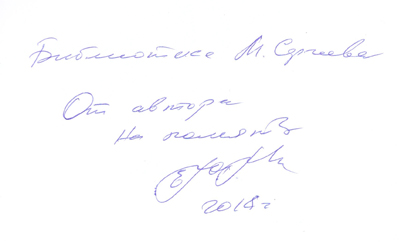 Библиотека М. Сергеева
От автора
На память
2018 г